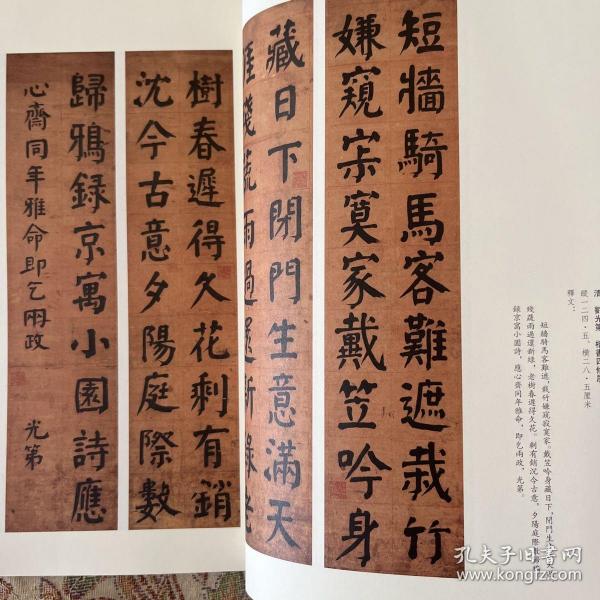 短牆騎馬客難遮栽竹
嫌窺㝥寞家戴笠吟身
藏日下閉門生意滿天
崖幾蔬雨過還新綠老
樹春遲得久花剩有銷
沈今古意夕陽庭際數
歸鴉錄京寓小園詩應
心齋同年雅命即乞兩政
光第
清 劉光第 楷書四條屏
縱一二四·五、橫二八·五厘米
釋文：
短牆騎馬客難遮，栽竹嫌窺寂寞家。戴笠吟身藏日下，閉門生意滿天
殘蔬雨過還新綠，老樹春遲得久花。剩有銷沉今古意，夕陽庭際數歸鴉
錄京寓小園詩，應心齋同年雅命，即乞兩政，光第。
孔夫子旧书网
www.kongfz.com